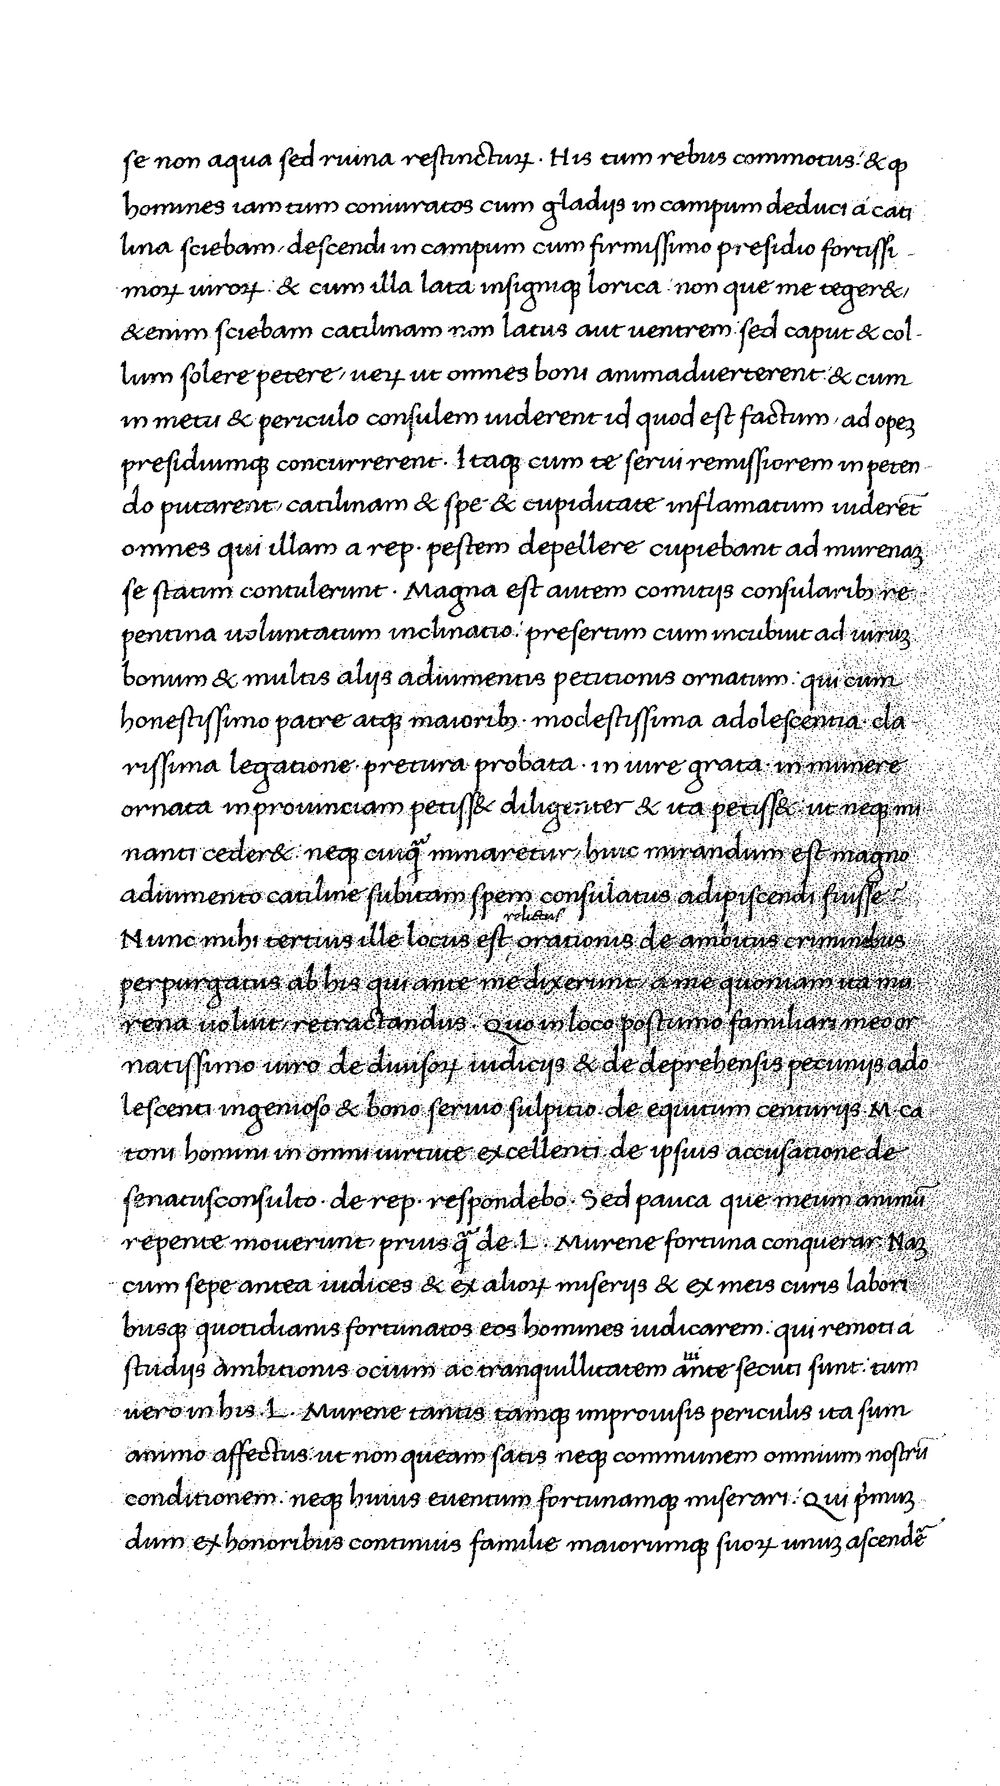 se non aqua sed ruina restincturꝝ. His tum rebus commotus: & ꝙ
homines iam tum coniuratos cum gladijs in campum deduci á cati
lina sciebam, descendi in campum cum firmissimo presidio fortissi-
moꝝ uiroꝝ: & cum illa lata insigniqꝫ lorica: non que me teger&,
&enim sciebam catilinam non latus aut uentrem sed caput & col-
lum solere petere, ueꝝ ut omnes boni animaduerterent: & cum
in metu & periculo consulem uiderent id quod est factum, ad opeꝫ
presidiumqꝫ concurrerent. Itaqꝫ cum te serui remissiorem in peten-
do putarent, catilinam & spe & cupiditate inflamatum uideret̄
omnes qui illam a rep. pestem depellere cupiebant ad murenaꝫ
se statim contulerunt. Magna est autem comitijs consularibꝫ re
pentina uoluntatum inclinatio: presertim cum incubuit ad uiruꝫ
bonum & multis alijs adiumentis petitionis ornatum: qui cum
honestissimo patre atqꝫ maioribꝫ. modestissima adolescentia. cla
rissima legatione. pretura probata. in iure grata. in munere
ornata in prouinciam petiss& diligenter & ita petiss& ut neqꝫ mi
nanti ceder&. neqꝫ cuiqᷓ minaretur, huic mirandum est magno
adiumento catiline subitam spem consulatus adipiscendi fuisse?
relictus
Nunc mihi tertius ille locus est orationis de ambitus criminibus
perpurgatus ab his qui ante me dixerunt, a me quoniam ita mu
rena uoluit, retractandus. Quo in loco postumo familiari meo or
natissimo uiro de diuisoꝝ iudicijs & de deprehensis pecunijs ado
lescenti ingenioso & bono seruio sulpitio. de equitum centurijs M. ca
toni homini in omni uirtute excellenti de ipsius accusatione de
senatusconsulto. de rep. respondebo. Sed pauca que meum animū
repente mouerunt, prius qᷓ de .L. Murene fortuna conquerar. Naꝫ
cum sepe antea iudices & ex alioꝝ miserijs & ex meis curis labori
busqꝫ quotidianis fortunatos eos homines iudicarem: qui remoti a
studijs ambitionis ocium ac tranquillitatem ante secuti sunt: tum
uero in his .L. Murene tantis tamqꝫ improuisis periculis ita sum
animo affectus. ut non queam satis neqꝫ communem omnium nostrū
conditionem. neqꝫ huius euentum fortunamqꝫ miserari: Qui p̓muꝫ
dum ex honoribus continuis familie maiorumqꝫ suoꝝ unuꝫ ascendē